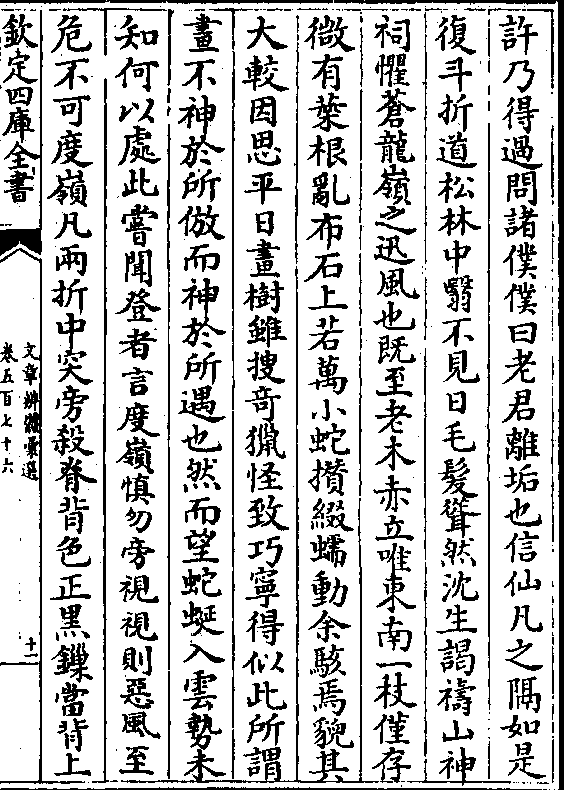 許乃得遇問諸僕僕曰老君離垢也信仙凡之隔如是
復斗折道松林中翳不見日毛髮聳然沈生謁禱山神
祠懼蒼龍嶺之迅風也既至老木赤立唯東南一枝僅存
微有葉根亂布石上若萬小蛇攢綴蠕動余駭焉貌其
大較因思平日畫樹雖搜竒獵怪致巧寧得似此所謂
畫不神於所倣而神於所遇也然而望蛇蜒入雲勢未
知何以處此嘗聞登者言度嶺慎勿旁視視則惡風至
危不可度嶺凡兩折中突旁殺脊背色正黑鏁當背上
欽定四庫全書
文章辨體彙選
卷五百七十六
十一